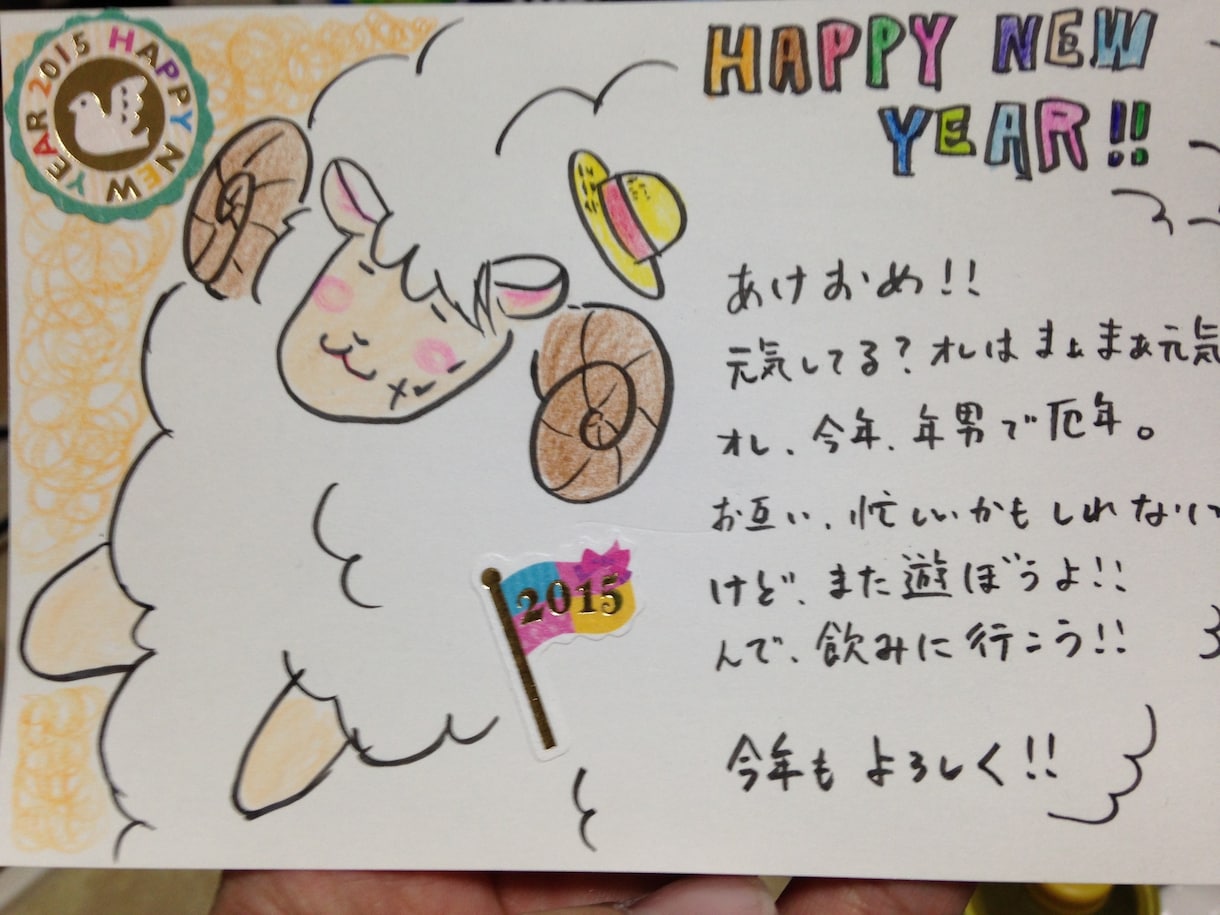 HAPPY NEW YEAR 2015
HAPPY NEW
YEAR!!
あけおめ!!
元気してる?オレはまぁまぁ元気
オレ、今年、年男で厄年。
お互い、忙しいかもしれない
けど、また遊ぼうよ!!
んで、飲みに行こう!!
2015
今年もよろしく!!